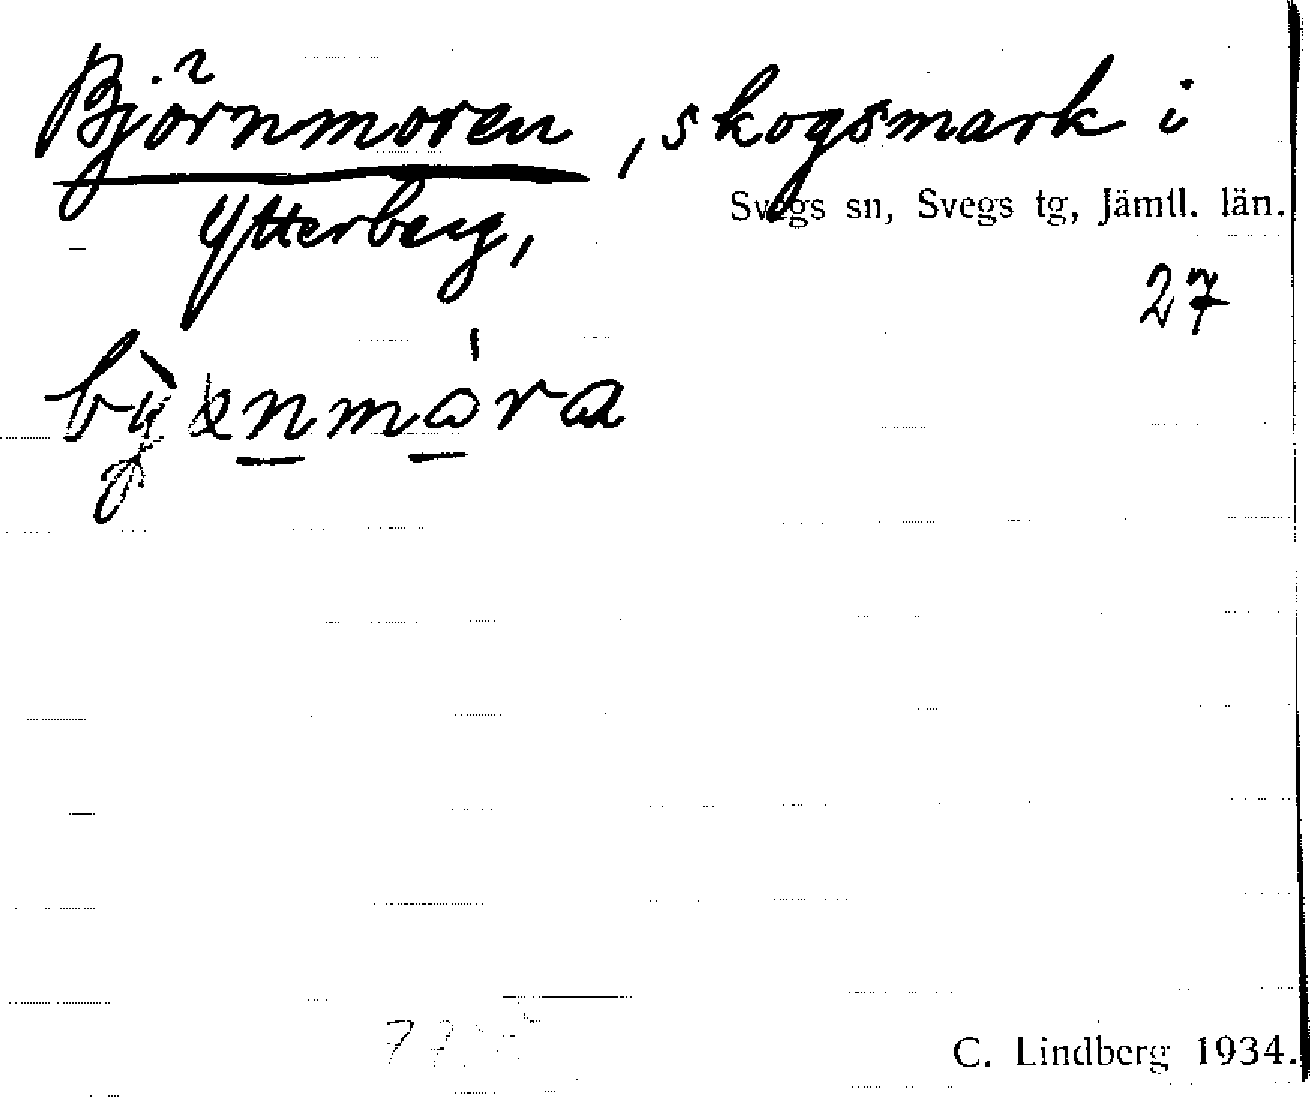 Björnmoren, skogsmark i
Ytterberg,
Svegs sn, Svegs tg, Jämtl. län.
27
C. Lindberg 1934.